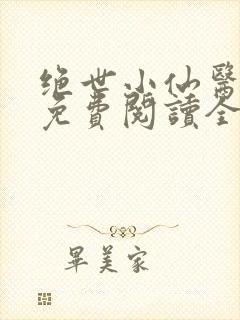 绝世小仙醫
免費閱讀全
畢美家